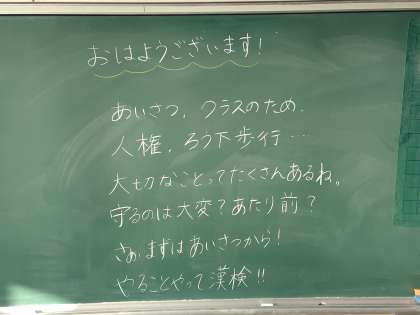 おはようございます!
あいさつ,クラスのため.
人権,ろう下歩行…
大切なことってたくさんあるね。
守るのは大変?あたり前?
さぁ,まずはあいさつから!
やることやって漢検!!